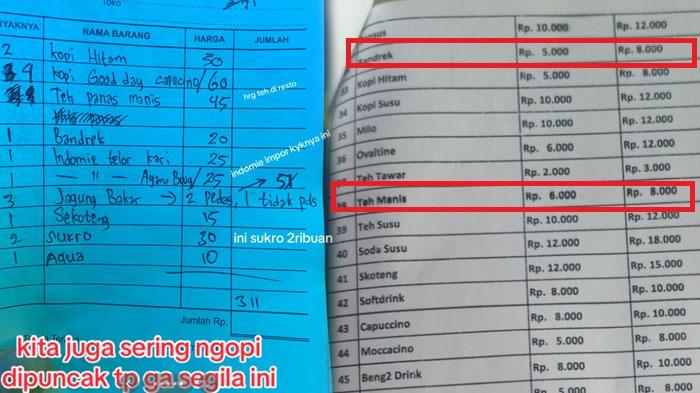 Toko
YAKNYA NAMA BARANG HARGA JUMLAH
2 kopi Hitam 30
4 kopi Good day capucino/60
Teh panas manis 45
hrg teh di resto
1 Bandrek 20
1 Indomie telor kari 25
indomie impor kyknya ini
1 — " — Ayam Bawa/25 → 5X
3 Jagung Bakar → 2 pedas, 1 tidak pds
1 Sekoteng 15
2 Sukro 30
ini sukro 2ribuan
1 Aqua 10
311
Jumlah Rp.
kita juga sering ngopi
dipuncak tp ga segila ini
Rp. 10.000 Rp. 12.000
andrek Rp. 5.000 Rp. 8.000
33 Kopi Hitam Rp. 5.000 Rp. 8.000
34 Kopi Susu Rp. 10.000 Rp. 12.000
35 Milo Rp. 10.000 Rp. 12.000
36 Ovaltine Rp. 6.000 Rp. 12.000
Teh Tawar Rp. 2.000 Rp. 3.000
38 Teh Manis Rp. 6.000 Rp. 8.000
39 Teh Susu Rp. 10.000 Rp. 12.000
40 Soda Susu Rp. 12.000 Rp. 18.000
41 Skoteng Rp. 12.000 Rp. 15.000
42 Softdrink Rp. 8.000 Rp. 10.000
43 Capuccino Rp. 8.000 Rp. 10.000
44 Moccacino Rp. 8.000 Rp. 12.000
45 Beng2 Drink Rp. 8.000 Rp. 10.000
Rp. 5.000 Rp. 8.000